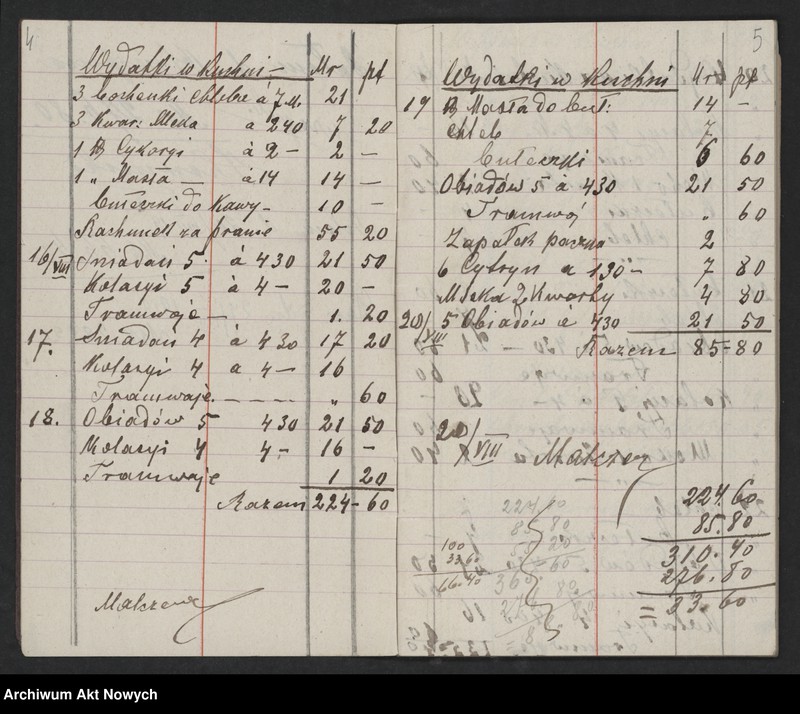 4
Wydatki w Kuchni - Mr pf
3 bochenki chleba à 7 M. 21
3 Kwar: Mleka a 240 7 20
1 ℔ Cykoryi à 2 - 2 -
1 " Masła - à 14 14 -
bułeczki do Kawy - 10 -
Rachunek za pranie 55 20
16/VIII Śniadań 5 à 430 21 50
Kolacyi 5 à 4 - 20 -
Tramwaje - 1. 20
17. Śniadań 4 à 430 17 20
Kolacyi 4 a 4 - 16
Tramwaje. - - - - " 60
18. Obiadów 5 430 21 50
Kolacyi 4 4 - 16 -
Tramwaje 1 20
Razem 224 - 60
5
Wydatki w Kuchni Mr pf
19 ℔ Masła do buł: 14 -
chleb 7
bułeczki 6 60
Obiadów 5 à 430 21 50
Tramwaj " 60
Zapałek paczka 2
6 Cytryn a 130 - 7 80
Mleka 2 Kwarty 4 80
20/VIII 5 Obiadów à 430 21 50
Razem 85 - 80
20/VIII
224.60
85.80
310.40
276.80
= 33.60
100
33.60
66.40
Archiwum Akt Nowych